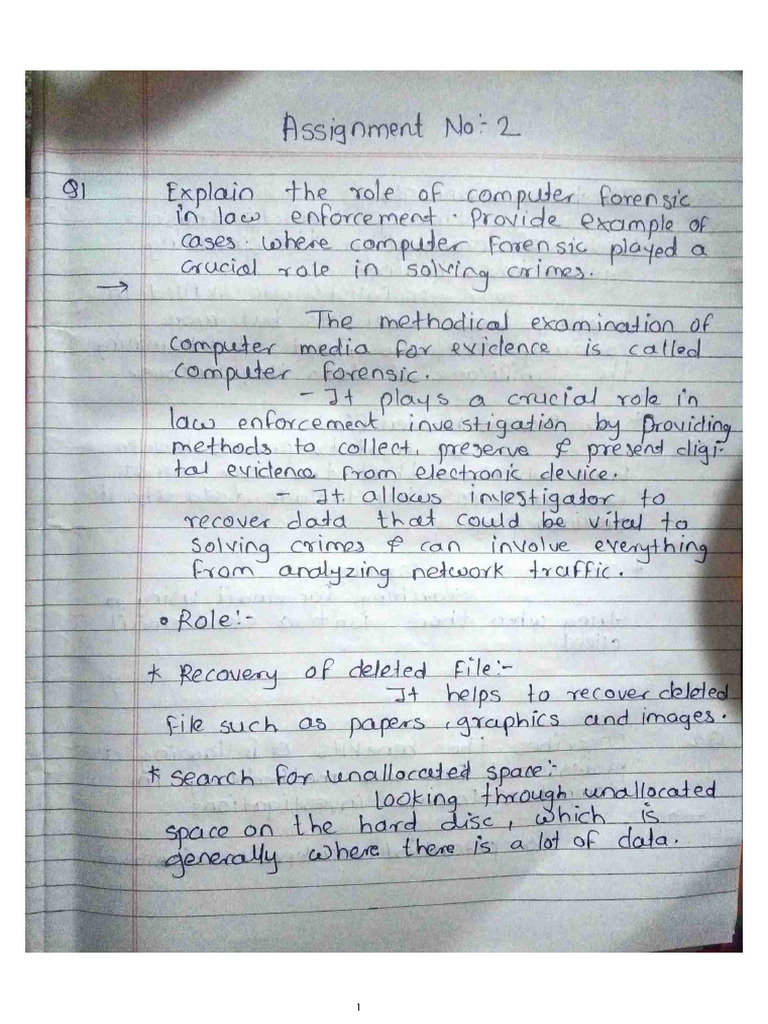 Assignment No:- 2
Q1 Explain the role of computer forensic
in law enforcement. Provide example of
cases. where computer forensic played a
crucial role in solving crimes.
→
The methodical examination of
computer media for evidence is called
computer forensic.
- It plays a crucial role in
law enforcement investigation by providing
methods to collect, preserve & present digi-
tal evidence from electronic device.
- It allows investigator to
recover data that could be vital to
solving crimes & can involve everything
from analyzing network traffic.
• Role:-
* Recovery of deleted File:-
It helps to recover deleted
file such as papers, graphics and images.
* Search for unallocated space:-
Looking through unallocated
space on the hard disc, which is
generally where there is a lot of data.
1